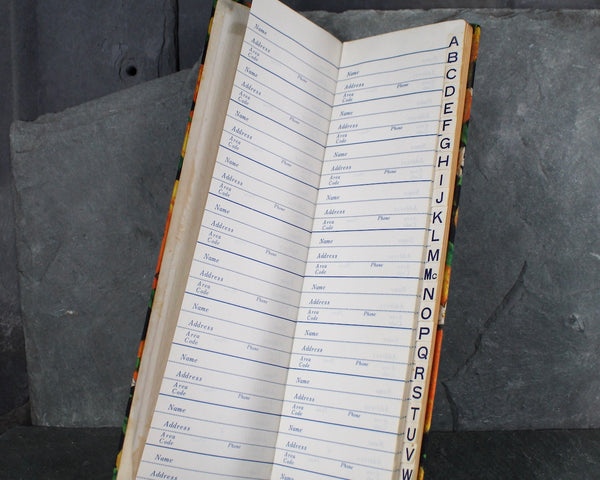 Name
Address
Area Code Phone
Name
Address
Area Code Phone
Name
Address
Area Code Phone
Name
Address
Area Code Phone
Name
Address
Area Code Phone
Name
Address
Area Code Phone
Name
Address
Area Code Phone
Name
Address
Area Code Phone
Name
Address
Area Code Phone
Name
Address
Name
Address Phone
Area Code
Name
Address Phone
Area Code
Name
Address Phone
Area Code
Name
Address Phone
Area Code
Name
Address Phone
Area Code
Name
Address Phone
Area Code
Name
Address Phone
Area Code
Name
Address Phone
Area Code
Name
Address Phone
Area Code
Name
A
B
C
D
E
F
G
H
I
J
K
L
M
Mc
N
O
P
Q
R
S
T
U
V
W